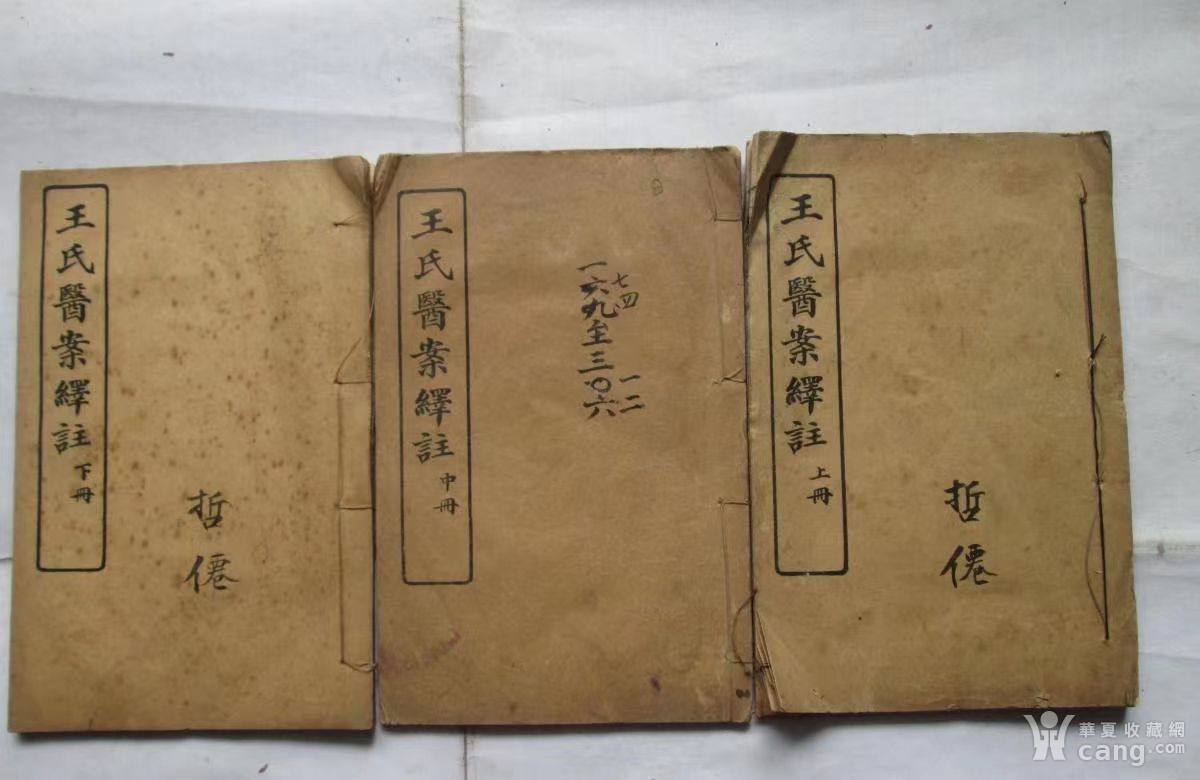 王氏醫案繹註 上冊
哲僊
王氏醫案繹註 中冊
一六九至三〇六
七四
一二
王氏醫案繹註 下冊
哲僊
華夏收藏網
cang.com